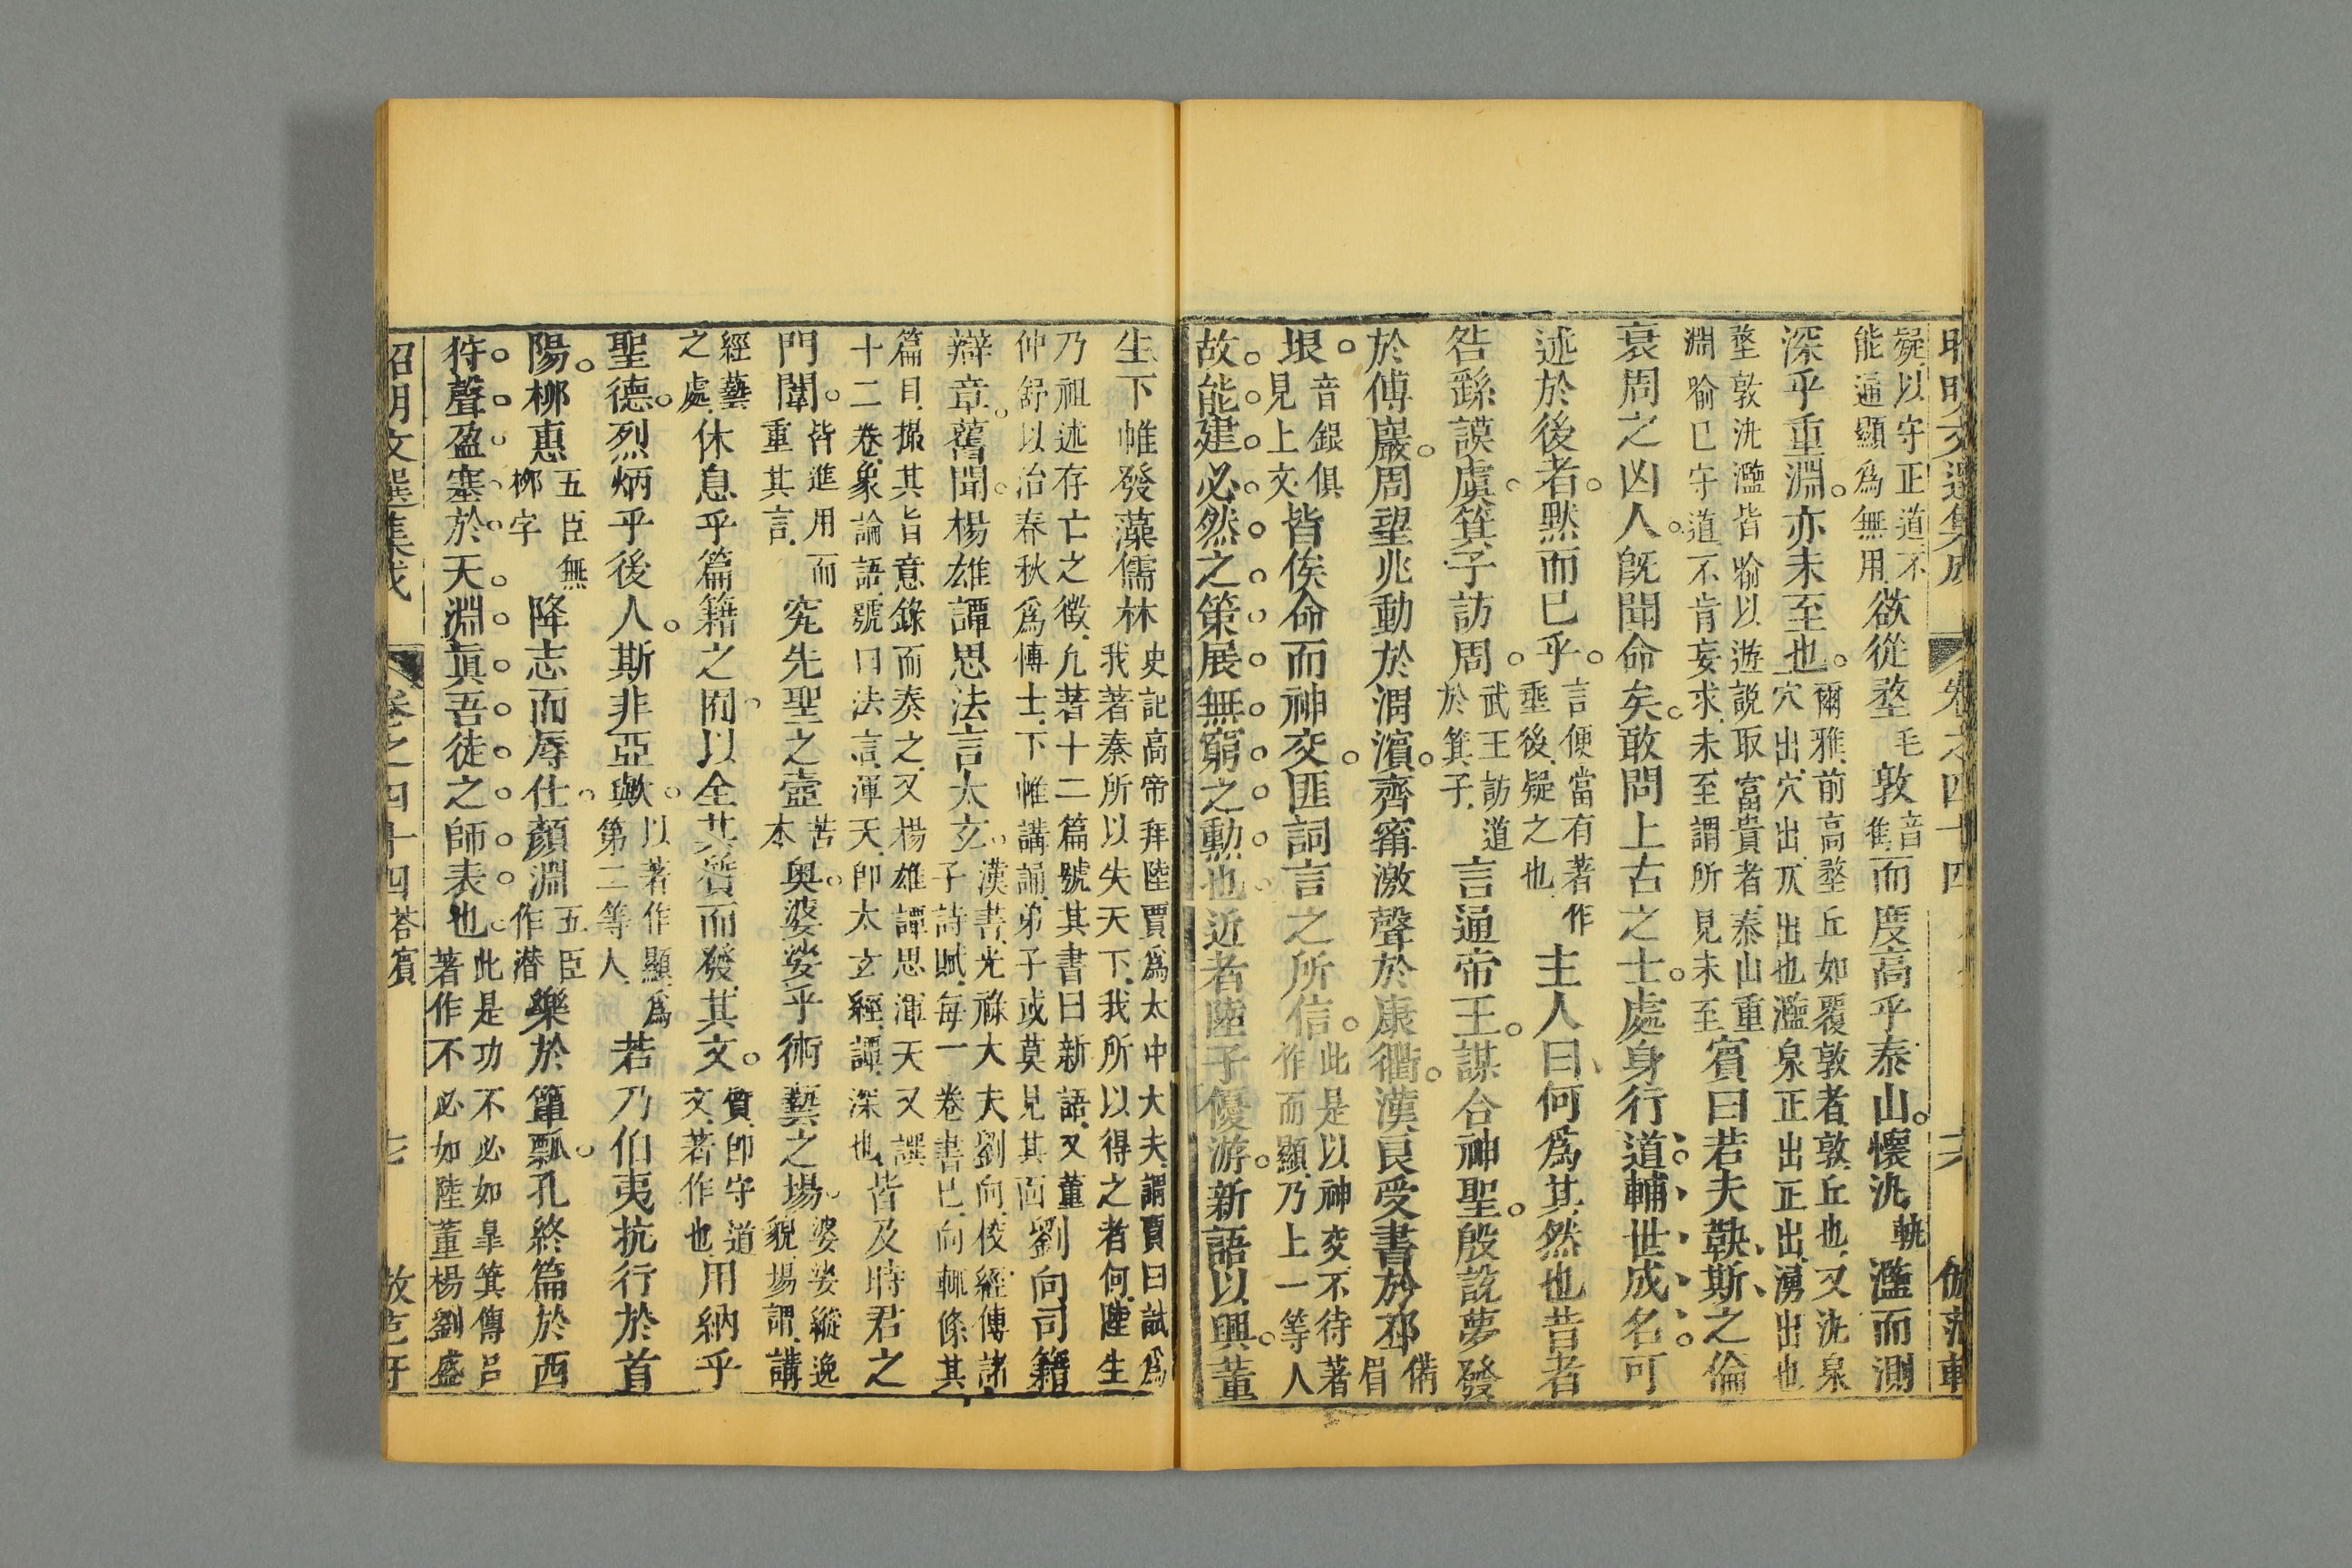 昭明文選集成 卷之四十四 六
疑以守正道不能通顯爲無用欲從堥毛敦音雋而度高乎泰山。懷氿軌濫而測
深乎重淵。亦未至也。爾雅前高堥丘如覆敦者敦丘也又氿泉穴出穴出仄出也濫泉正出正出湧出也
堥敦氿濫皆喻以遊説取富貴者泰山重淵喻已守道不肯妄求未至謂所見未至賓曰若夫鞅斯之倫
衰周之凶人。旣聞命矣。敢問上古之士。處身行道。輔世成名。可
述於後者。默而已乎。言便當有著作垂後疑之也主人曰何爲其然也昔者
咎繇謨虞。箕子訪周。武王訪道於箕子言通帝王。謀合神聖。殷說夢發
於傅巖。周望兆動於渭濱。齊甯激聲於康衢。漢良受書於邳備眉
垠。音銀俱見上文皆俟命而神交。匪詞言之所信。此是以神交不待著作而顯乃上一等人
故能建必然之策。展無窮之勲也。近者陸子優游。新語以興。董
生下帷發藻儒林史記高帝拜陸賈爲太中大夫謂賈曰試爲我著秦所以失天下我所以得之者何陸生
乃祖述存亡之徵凢著十二篇號其書曰新語又董仲舒以治春秋爲愽士下帷講誦弟子或莫見其面劉向司籍
辯章。舊聞。楊雄譚思法言太玄。漢書光祿大夫劉向校經傳諸子詩賦每一卷書已向輒條其
篇目撮其旨意錄而奏之又楊雄譚思渾天又譔十二卷象論語號曰法言渾天即太玄經譚深也皆及時君之
門闈。皆進用而重其言究先聖之壼苦本奥。婆娑乎術藝之場婆娑縱逸貌場謂講
經藝之處休息乎篇籍之囿以全其質而發其文。質即守道文著作也用納乎
聖德。烈炳乎後人。斯非亞歟。以著作顯爲第二等人若乃伯夷抗行於首
陽。柳惠五臣無柳字降志而辱仕。顏淵五臣作潛樂於簞瓢。孔終篇於西
狩。聲盈塞於天淵。眞吾徒之師表也。此是功不必如皋箕傅呂著作不必如陸董楊劉盛
昭明文選集成 卷之四十四 荅賓 七